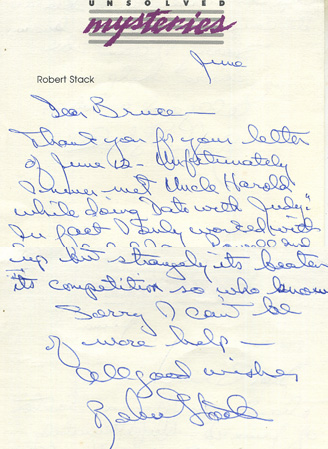 UNSOLVED
mysteries
June
Robert Stack
Dear Bruce —
Thank you for your letter
of June 12 — Unfortunately
I never met Uncle Harold
while doing "Date with Judy."
In fact I only worked with
and
up but strangely its beaten
its competition so who knows
Sorry I can't be
of more help —
All good wishes
Robert Stack